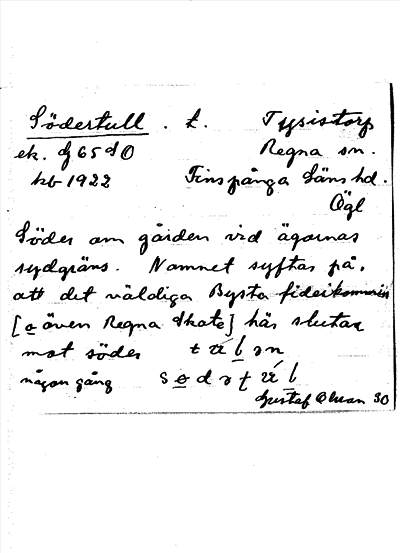 Södertull . t. Tysistorp
ek. f 65 d O Regna sn.
kb 1922 Finspånga läns hd.
Ögl
Söder om gården vid ägornas
sydgräns. Namnet syftar på,
att det väldiga Bysta fideikommiss
[o även Regna Skate] här slutar
mot söder
någon gång
Gustaf Ohman 30